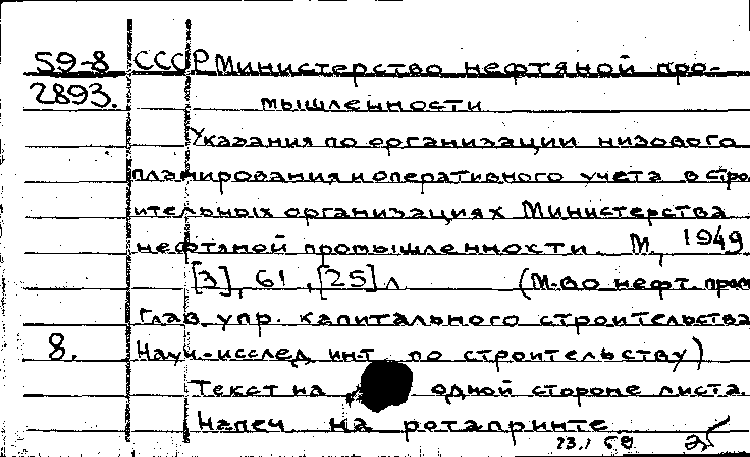 59-8 СССР Министерство нефтяной про-
2893. мышленности
Указания по организации низового
планирования и оперативного учета в стро
ительных организациях Министерства
нефтяной промышленности М, 1949
[3], 61, [25] л (М-во нефт. пром
Глав. упр. капитального строительства
8. Науч.-исслед. инт по строительству)
Текст на одной стороне листа.
Напеч на ротапринте
23.1 59